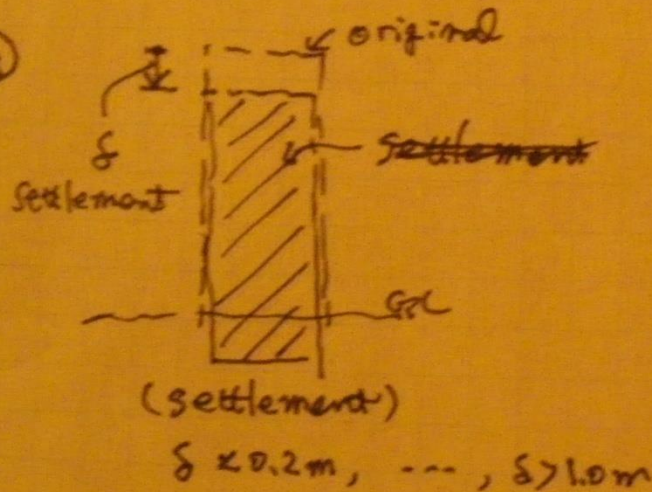 original
δ
settlement
settlement
GL
(settlement)
δ < 0.2m, ---, δ > 1.0m